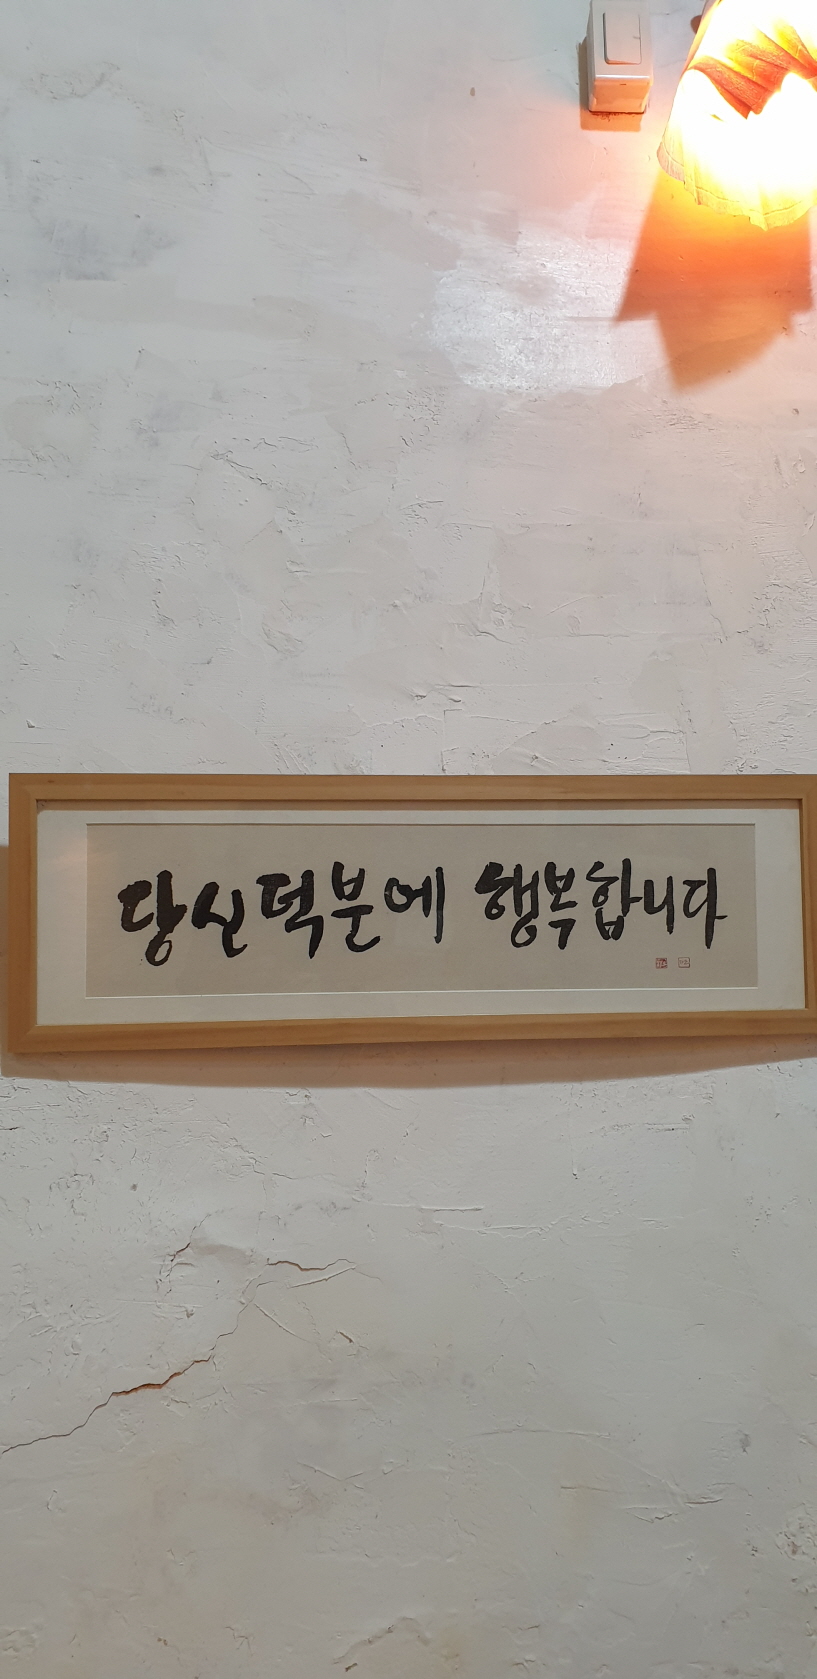 당신덕분에 행복합니다